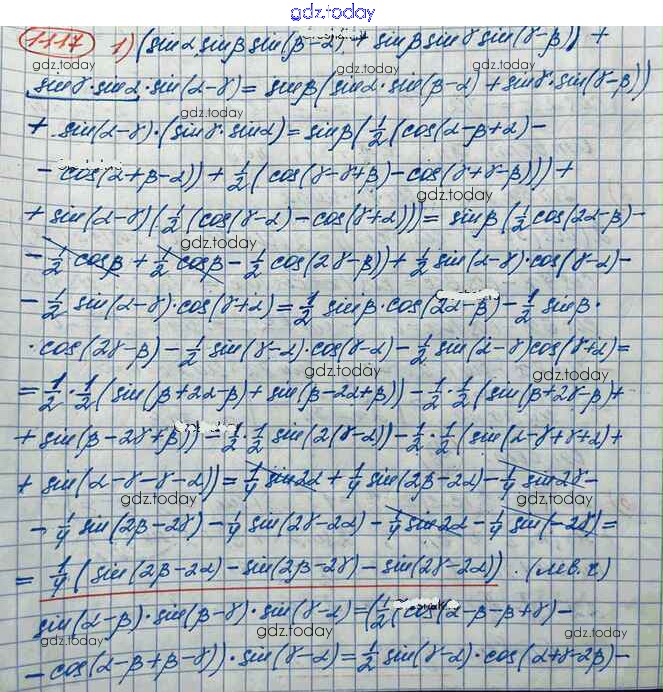 gdz.today
1117 1) (sinα sinβ sin(β-α) + sinβ sinγ sin(γ-β)) +
sinγ·sinα·sin(α-γ) = sinβ(sinα·sin(β-α) + sinγ·sin(γ-β))
+ sin(α-γ)·(sinγ·sinα) = sinβ(1/2(cos(α-β+α) -
- cos(α+β-α)) + 1/2(cos(γ-γ+β) - cos(γ+γ-β))) +
+ sin(α-γ)(1/2(cos(γ-α) - cos(γ+α))) = sinβ(1/2cos(2α-β) -
- 1/2 cosβ + 1/2 cosβ - 1/2 cos(2γ-β)) + 1/2 sin(α-γ)·cos(γ-α) -
- 1/2 sin(α-γ)·cos(γ+α) = 1/2 sinβ·cos(2α-β) - 1/2 sinβ·
·cos(2γ-β) - 1/2 sin(γ-α)·cos(γ-α) - 1/2 sin(α-γ)cos(γ+α) =
= 1/2·1/2(sin(β+2α-β) + sin(β-2α+β)) - 1/2·1/2(sin(β+2γ-β) +
+ sin(β-2γ+β)) - 1/2·1/2 sin(2(γ-α)) - 1/2·1/2(sin(α-γ+γ+α) +
+ sin(α-γ-γ-α)) = 1/4 sin2α + 1/4 sin(2β-2α) - 1/4 sin2γ -
- 1/4 sin(2β-2γ) - 1/4 sin(2γ-2α) - 1/4 sin2α - 1/4 sin(-2γ) =
= 1/4 (sin(2β-2α) - sin(2β-2γ) - sin(2γ-2α)). (лев.ч)
sin(α-β)·sin(β-γ)·sin(γ-α) = (1/2(cos(α-β-β+γ) -
- cos(α-β+β-γ))·sin(γ-α) = 1/2 sin(γ-α)·cos(α+γ-2β) -
gdz.today
gdz.today
gdz.today
gdz.today
gdz.today
gdz.today
gdz.today
gdz.today
gdz.today
gdz.today
gdz.today
gdz.today
gdz.today